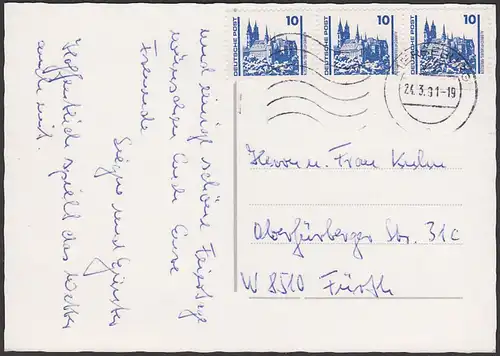 und einige schöne Feiertage
wünschen Euch Eure
Freunde
und Günter
Hoffentlich spielt das Wetter
auch mit.
DEUTSCHE POST
10
DEUTSCHE POST
10
DEUTSCHE POST
10
24.3.91-19
Herrn u. Frau Kuhn
Oberfürberger Str. 31c
W 8510 Fürth